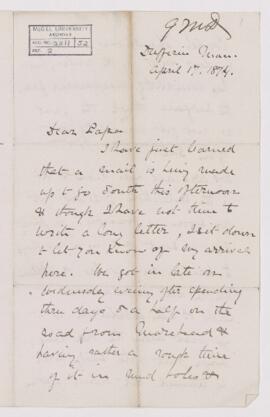 GMD
McGILL UNIVERSITY
ARCHIVES
ACC. NO.
REF. 2
Dufferin, Man.
April 1st, 1874.
Dear Papa
I have just learned
that a mail is being made
up to go South this afternoon
& though I have not time to
write a long letter, I sit down
to let you know of my arrival
here. We got in late on
Wednesday evening after spending
three days & a half on the
road from Moorhead &
having rather a rough time
of it in mud holes &